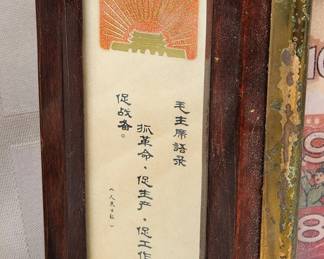 毛主席語录
抓革命,促生产,促工作
促战备。
《人民日报》
10
9
8